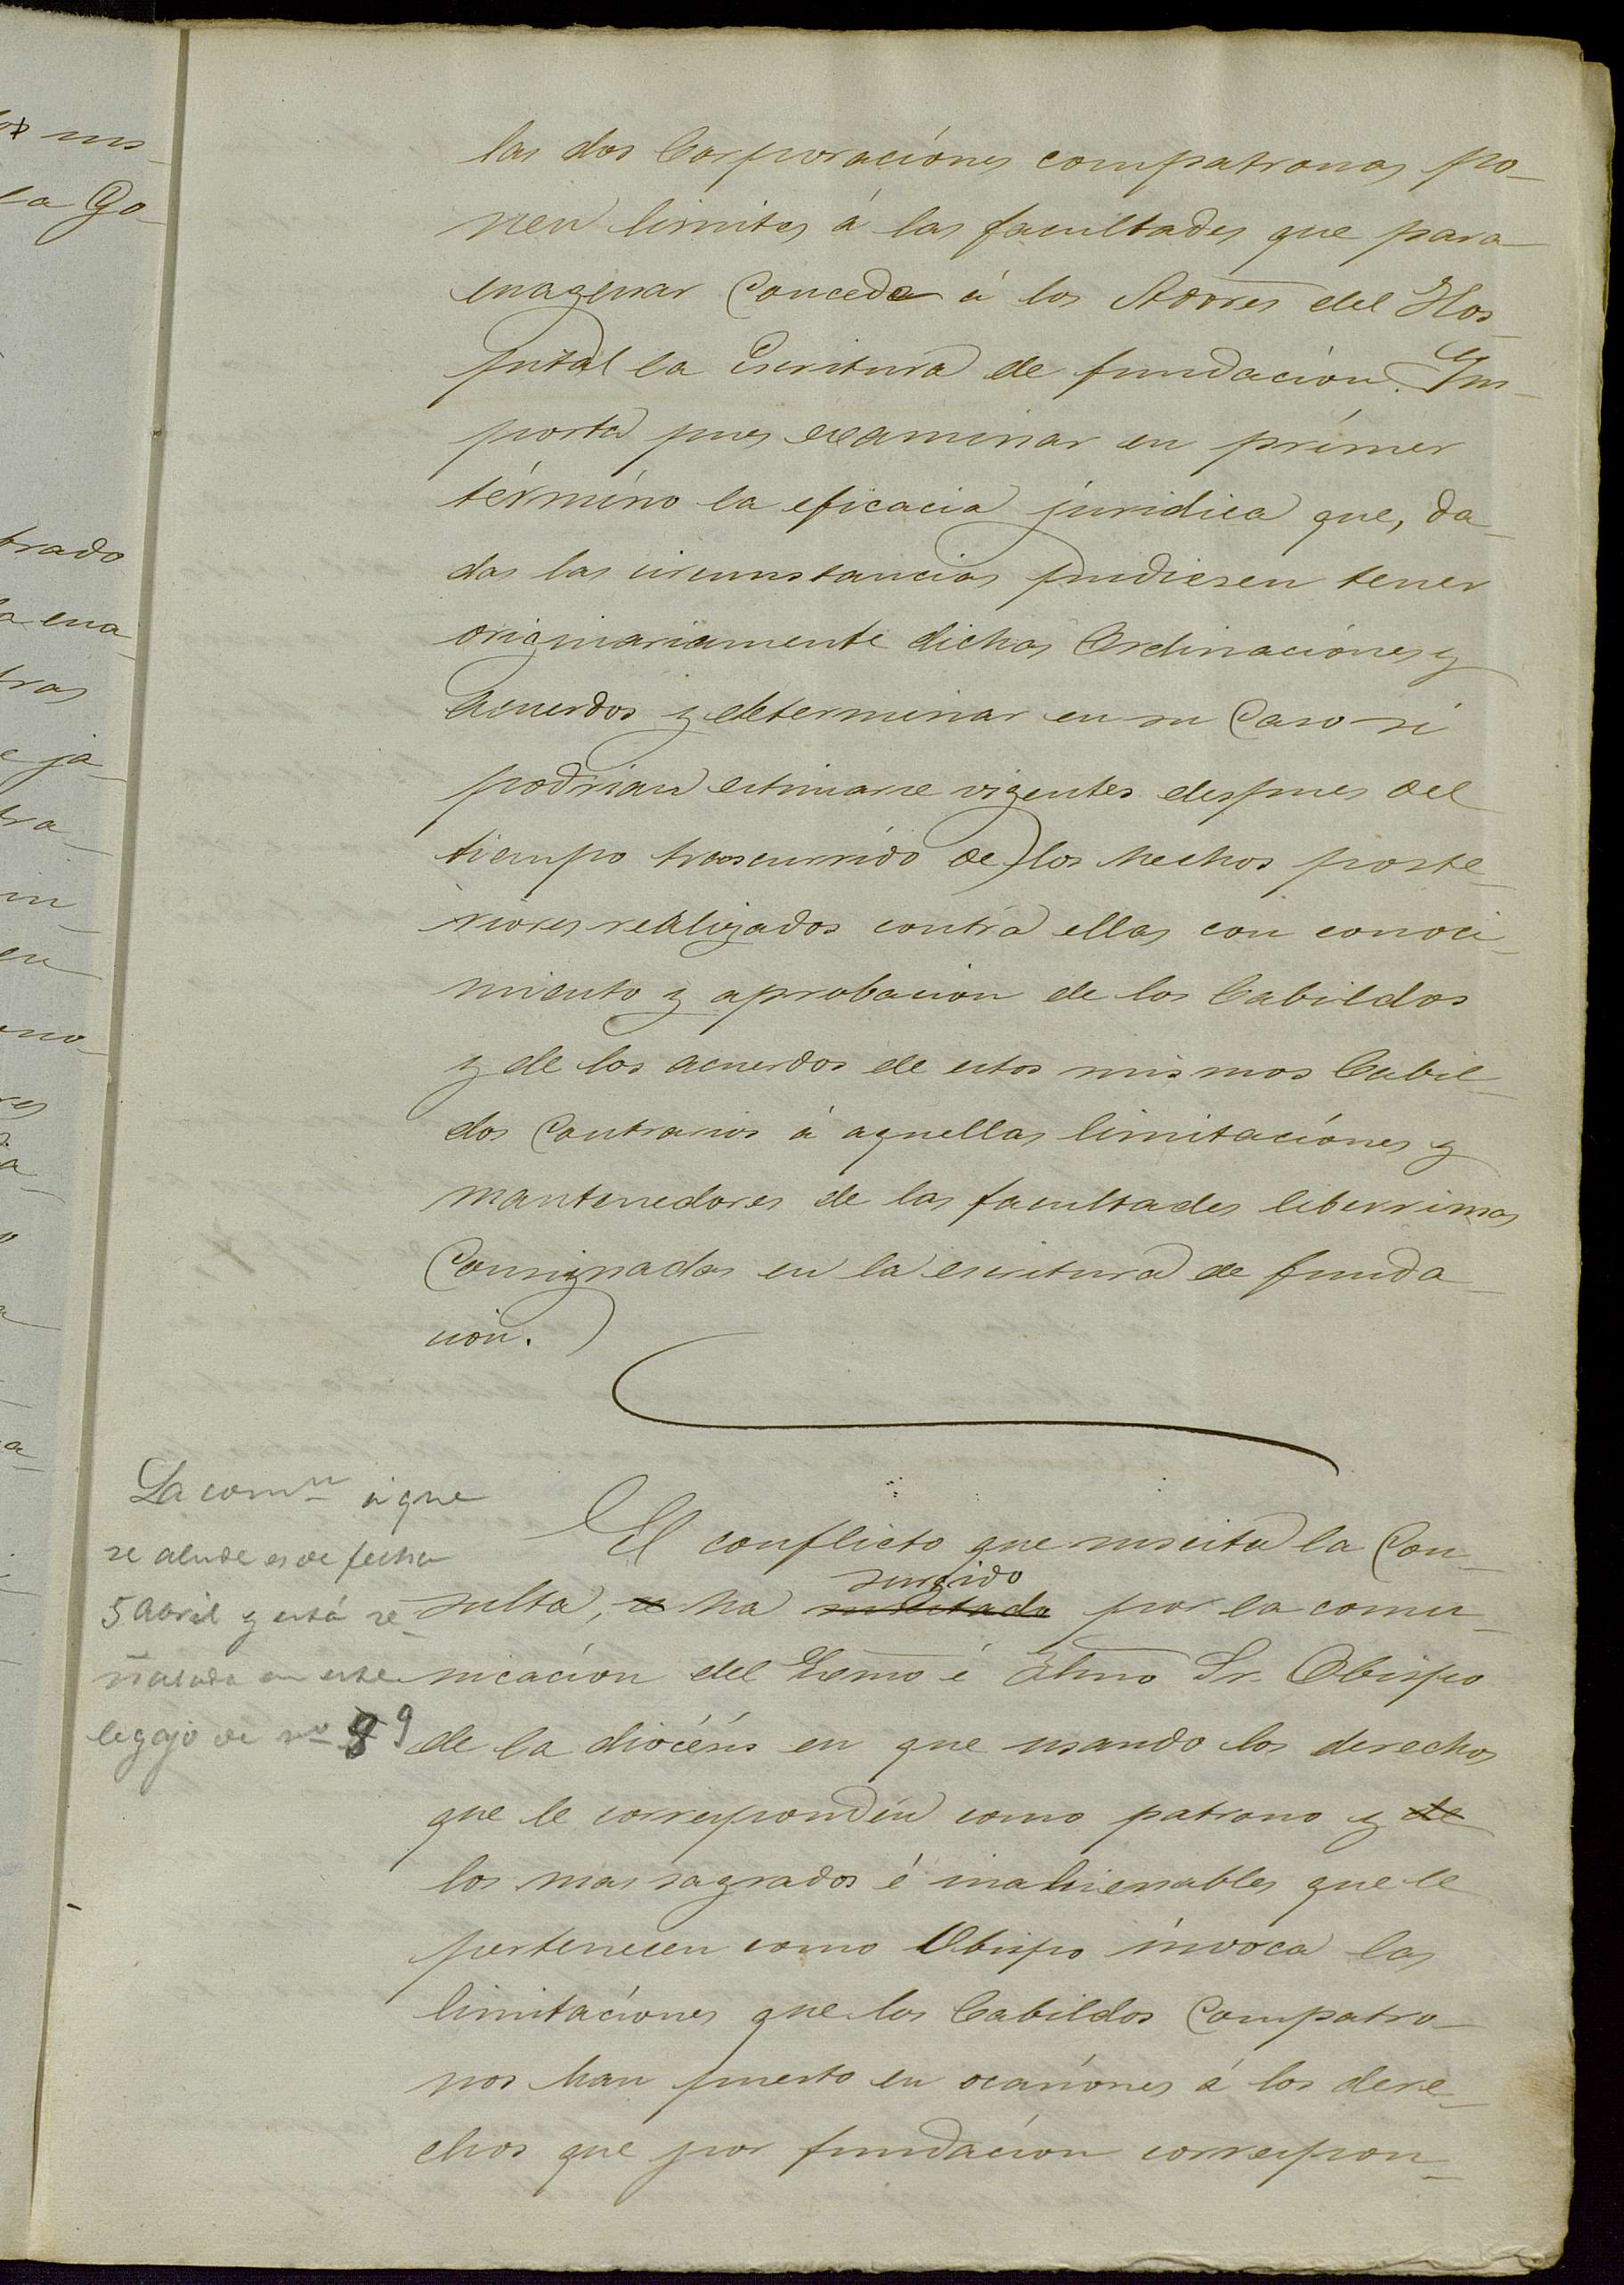 las dos Corporaciónes compatronas po-
nen limites á las facultades que para
enagenar Concede á los Adores del Hos-
pital la Escritura de fundación. Im-
porta pues examinar en primer
término la eficacia juridica que, da-
das las circunstancias pudiesen tener
originariamente dichas Ordinaciónes y
Acuerdos y determinar en su Caso si
podrian estimarse vigentes despues del
tiempo trascurrido de los hechos poste-
riores realizados contra ellas con conoci-
miento y aprobacion de los Cabildos
y de los acuerdos de estos mismos Cabil-
dos Contrarios á aquellas limitaciónes y
mantenedores de las facultades liberrimas
Consignadas en la escritura de funda-
cion.
La comⁿ á que
se alude es de fecha
5 Abril y está se-
ñalada en este
legajo de nº 8 9
El conflicto que suscita la Con-
surgido
sulta, se ha suscitado por la comu-
nicación del Excmo é Iltmo Sr. Obispo
de la diócésis en que usando los derechos
que le corresponden como patrono y de
los mas sagrados é inalienables que le
pertenecen como Obispo invoca las
limitaciónes que los Cabildos Compatro-
nos han puesto en ocasiónes á los dere-
chos que por fundacion correspon-